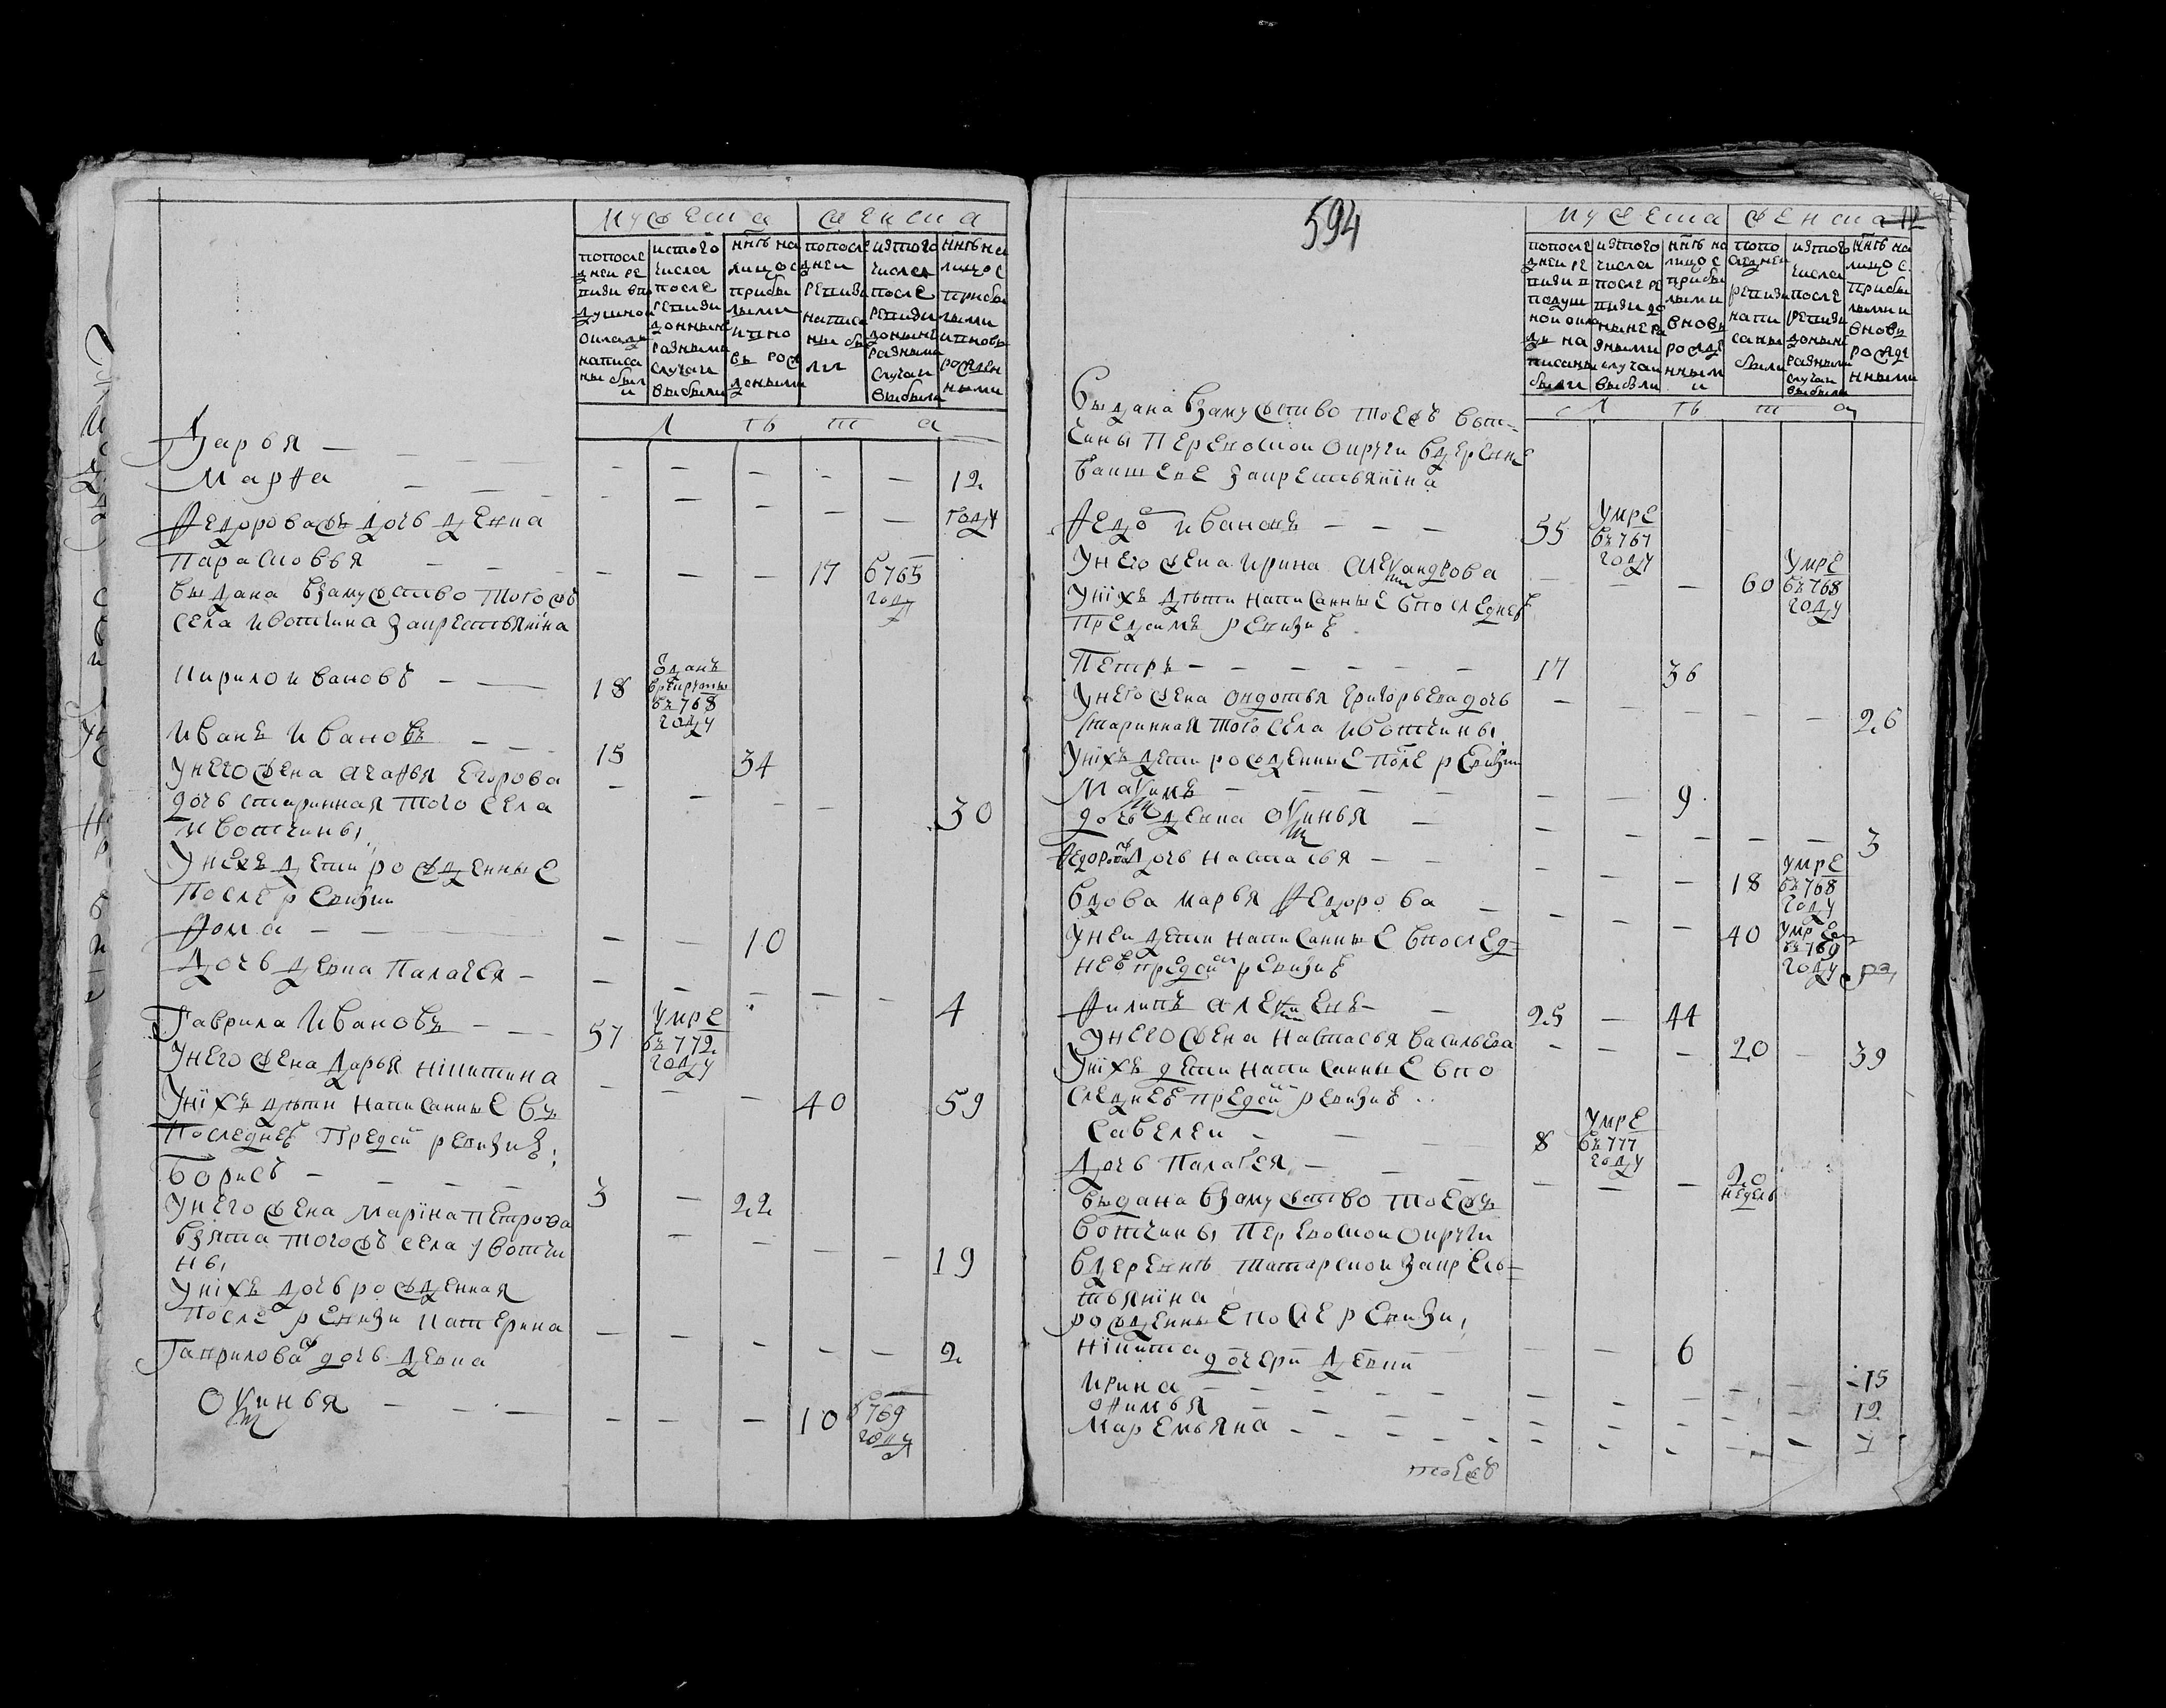 мужеска
женска
попосле
дней ре
визи впо
душной
окладъ
написа
ны был
и
истого
числа
после
ревизи
доныне
разными
случаи
выбыли
ннѣ на
лицо с
прибы
лыми
ивно
вь рож
деными
попосле
дней
ревизи
написа
ны бы
ли
изтого
числа
после
ревизи
донынѣ
разными
случаи
выбыли
ннѣ на
лицо с
прибы
лыми
ивновь
рожден
ными
лѣта
Дарья
12
Марѳа
году
Ѳедорова жъ дочь девка
Парасковья 17 в 765 году
выдана взамужство того жъ
села ивотчина закрестьянина
Кирило ивановъ 18 зданъ врекруты въ 768 году
Иванъ Ивановъ 15 34
унего жена агаѳья Егорова 30
дочь старинная того села
ивотчины
Унихъ дети рожденные
после ревизии
Ѳома 10
Дочь девка Палагея 4
Гаврила Ивановъ 57 умре въ 772 году
унего жена Дарья Никитина 40 59
Унихъ дѣти написанные въ
последней пред сей ревизие;
Борисъ 3 22
Унего жена Марина петрова 19
взята того жъ села ивотчи
ны
унихъ дочь рожденная
после ревизи катерина 2
Гаврилова жъ дочь девка
Оксинья 10 в 769 году
594
мужеска
женска
12
попосле
дней ре
визи п
подуш
ной окла
дъ на
писаны
были
изтого
числа
после ре
визи до
ныне ра
зными
случаи
выбыли
ннѣ на
лицо с
прибы
лыми
вновь
рожде
нным
и
попо
следней
ревизи
напи
саны
были
изтого
числа
после
ревизи
донынѣ
разными
случаи
выбыли
ннѣ на
лицо с
прибы
лыми и
вновь
рожде
нными
лѣта
Выдана взамужство тоежъ вот-
чины Перевоской округи вдеревне
вакшеве закрестьянина
Ѳедоръ Ивановъ 55 умре въ 767 году
Унего жена Ирина Александрова 60 умре въ 768 году
Унихъ дѣти написанные впоследней
пред симъ ревизие
Петръ 17 36
Унего жена овдотья григорьева дочь 26
старинная того села ивотчины
Унихъ дети рожденные после ревизии
Максимъ 9
дочь девка оксинья 3
Ѳедорова жъ дочь настасья 18 умре въ 768 году
вдова марья Ѳедорова 40 умре въ 769 году
Уней дети написанные впослед-
ней предсей ревизие
Филипъ алексеевъ 25 44
Унего жена настасья васильева 20 39
Унихъ дети написанные впо
следней предсей ревизие
Савелей 8 умре въ 777 году
Дочь Палагея 20 недель
выдана взамужство тоежъ
вотчины Перевоской округи
вдеревнѣ татарской закресть-
тьянина
рожденные после ревизи,
Никита 6
дочери девки
Ирина 15
оѳимья 12
Маремьяна
тоежъ